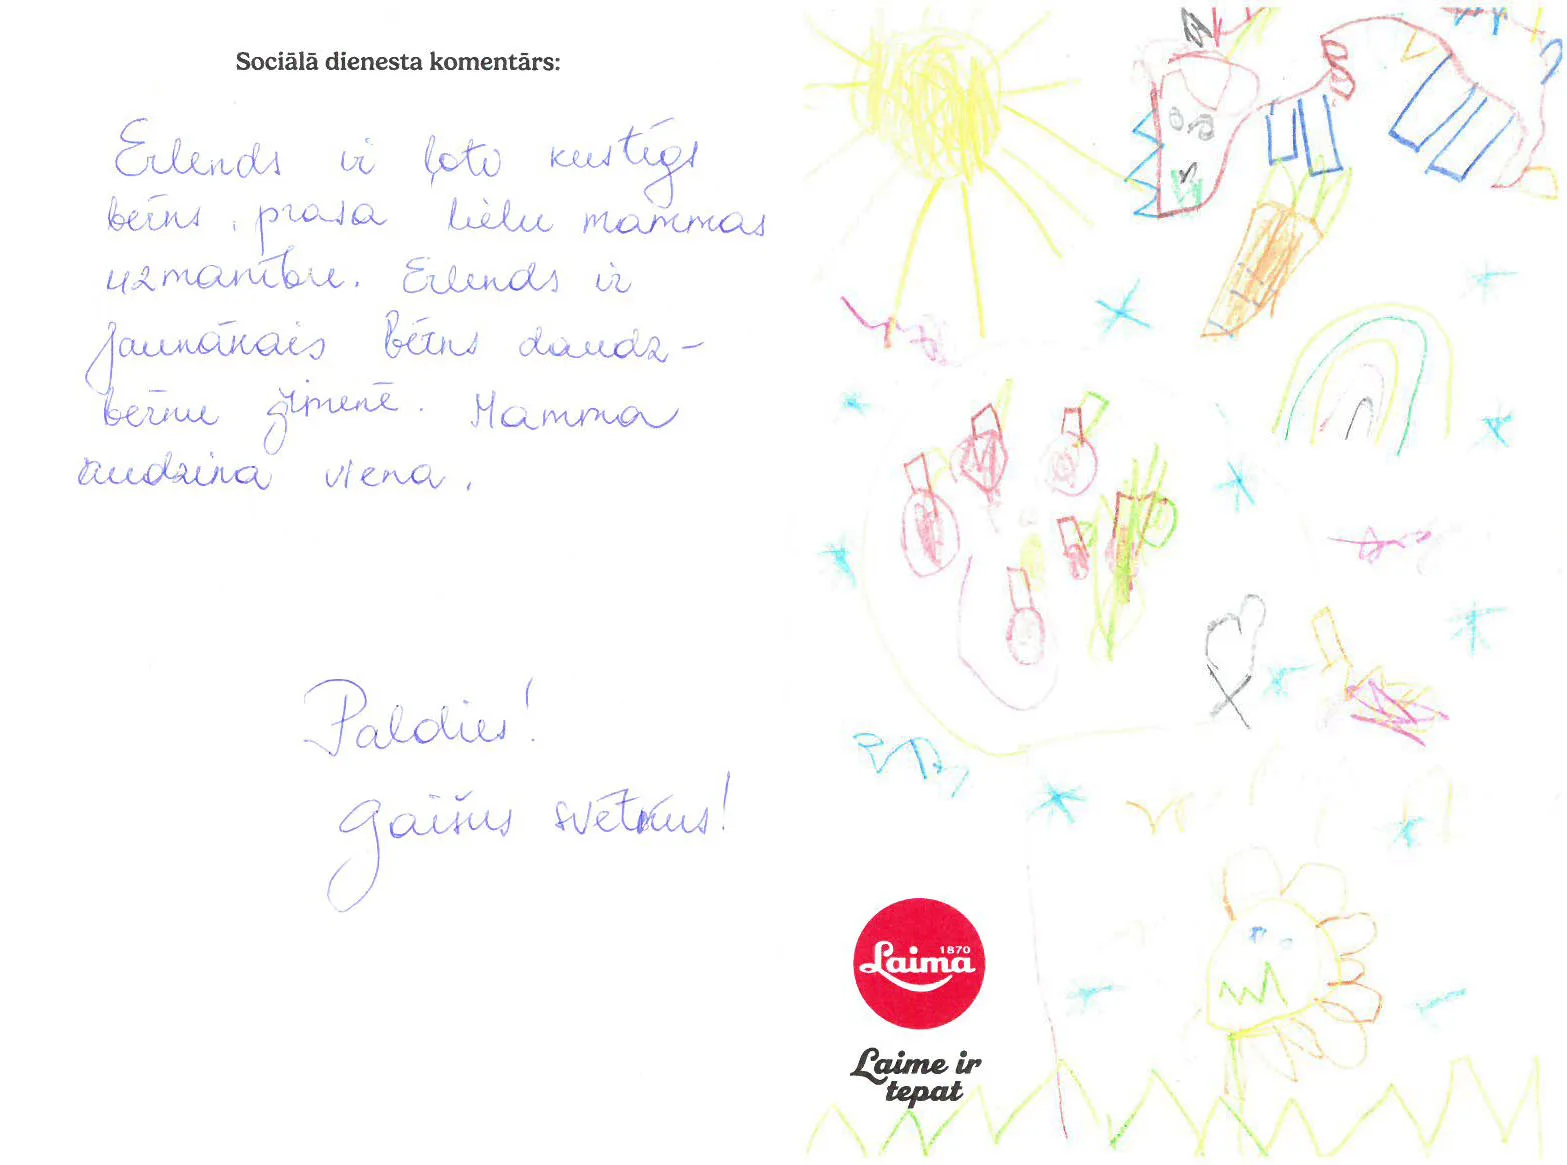 Sociālā dienesta komentārs:
Erlends ir ļoti kustīgs
bērns, prasa lielu mammas
uzmanību. Erlends ir
jaunākais bērns daudz-
bērnu ģimenē. Mamma
audzina viena.
Paldies!
Gaišus svētkus!
1870
Laima
Laime ir
tepat